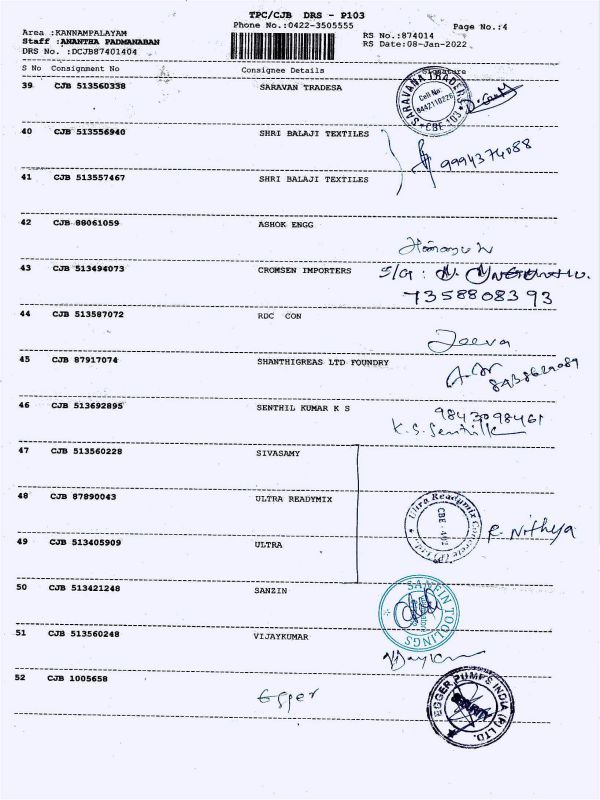 TPC/CJB DRS - P103
Phone No.:0422-3505555
Page No.:4
Area :KANNAMPALAYAM
RS No.:874014
Staff :ANANTHA PADMANABAN
RS Date:08-Jan-2022
DRS No. :DCJB87401404
S No Consignment No Consignee Details Signature
39 CJB 513560338 SARAVAN TRADESA
SARAVANA TRADERS
Cell No:
9442110226
CBE-103
40 CJB 513556940 SHRI BALAJI TEXTILES
9994374088
41 CJB 513557467 SHRI BALAJI TEXTILES
42 CJB 88061059 ASHOK ENGG
43 CJB 513494073 CROMSEN IMPORTERS
7358808393
44 CJB 513587072 RDC CON
Jeeva
45 CJB 87917074 SHANTHIGREAS LTD FOUNDRY
46 CJB 513692895 SENTHIL KUMAR K S
9843098461
K.S.Senthilk
47 CJB 513560228 SIVASAMY
48 CJB 87890043 ULTRA READYMIX
Ultra Readymix Concrete (P) Ltd.
CBE - 402
R. Nithya
49 CJB 513405909 ULTRA
50 CJB 513421248 SANZIN
SANFIN TOOLINGS
51 CJB 513560248 VIJAYKUMAR
Vijayku
52 CJB 1005658 Egger
EGGER PUMPS INDIA (P) LTD.
SECURITY